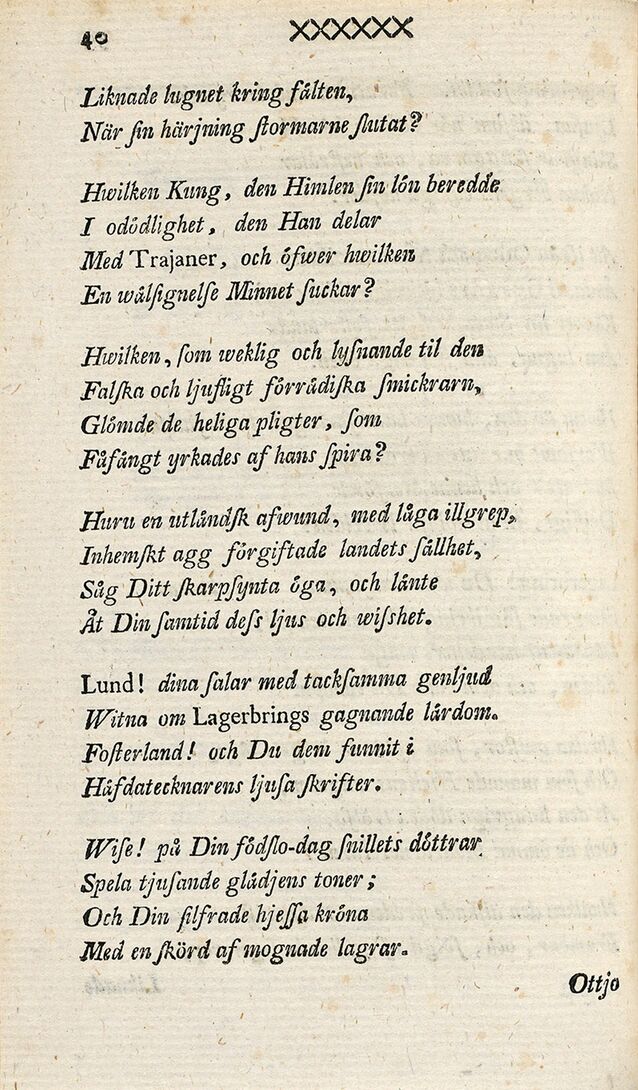 40 XXXXXX
Liknade lugnet kring fälten,
När ſin härjning ſtormarne ſlutat?
Hwilken Kung, den Himlen ſin lön beredde
I odödlighet, den Han delar
Med Trajaner, och öfwer hwilken
En wälſignelſe Minnet ſuckar?
Hwilken, ſom weklig och lyſnande til den
Falſka och ljufligt förrädiſka ſmickrarn,
Glömde de heliga pligter, ſom
Fåfängt yrkades af hans ſpira?
Huru en utländſk afwund, med låga illgrep,
Inhemſkt agg förgiftade landets ſällhet,
Såg Ditt ſkarpſynta öga, och länte
Åt Din ſamtid deſs ljus och wiſshet.
Lund! dina ſalar med tackſamma genljud
Witna om Lagerbrings gagnande lärdom.
Foſterland! och Du dem funnit i
Häfdatecknarens ljuſa ſkrifter.
Wiſe! på Din födſlo-dag ſnillets döttrar
Spela tjuſande glädjens toner;
Och Din ſilfrade hjeſſa kröna
Med en ſkörd af mognade lagrar.
Ottjo